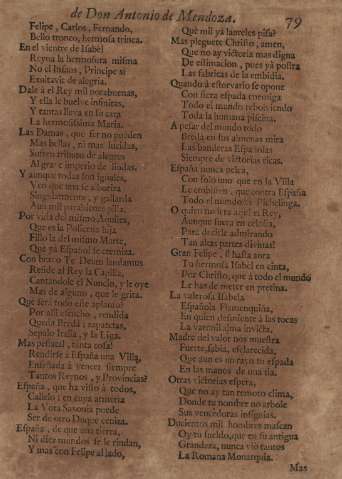 de Don Antonio de Mendoza. 79
Felipe, Carlos, Fernando,
Bello tronco, hermosa trinca.
En el vientre de Isabel
Reyna la hermosura misma
No el Infante, Principe si
Exaitavit de alegria.
Dale à el Rey mil norabuenas,
Y ella le buelve infinitas,
Y tantas lleva en su cara
La hermosissima Maria.
Las Damas, que ser no pueden
Mas bellas, ni mas lucidas,
Sufren tributo de
Al gran imperio de lindas.
Y aunque todas son iguales,
Veo que una se
Singularmente, y gallarda
Aun
Por vida del mismo Amor,
Que es la
Fillo la del mismo Morte,
Que yà Español se eterniza.
Con bravo Te Deum laudamus
Reside al Rey la Capilla,
Cantandole el Nuncio, y le oye
Mas de alguno, que le grita.
Que serà todo este aplauso?
Por allì escucho, rendida
Queda Bredà; zapatetas,
Sepalo Italia, y la Liga.
Mas pesiatal, tanta cosa?
Rendirse à España una Villa,
Enseñada à vencer siempre
Tantos Reynos, y Provincias?
España, que ha visto à todos,
Callisto; en cuya armeria
La Vota Saxonia puede
Ser de otro Duque ceniza.
España, de que una tierra,
Ni diez mundos se le rindan,
Y mas con Felipe al lado,
Què mil yà laureles pisa?
Mas pleguete Christo, amen,
Que no ay victoria mas digna
De estimacion, pues yà postra
Las fabricas de la embidia.
Quando à estorvarlo se opone
Con fiera espada enemiga
Todo el mundo rebolviendo
Toda la humana piscina.
A pesar del mundo todo
Breda en sus almenas mira
Las banderas Españolas
Siempre de victorias ricas.
España nunca pelea,
Con solo uno que en la Villa
Le embisten, que contra España
Todo el mundo es Pichelinga.
O quien tuviera aqui el Rey,
Aunque fuera en celosia,
Para dezirle admirando
Tan altas partes divinas!
Gran Felipe, si hasta aora
Tu hermosa Isabel en cinta,
Pez Christo, que à todo el mundo
Le has de meter en pretina.
La valerosa Isabela
Española Flamenquiña,
En quien desmiente à las tocas
La varonil alma invicta.
Madre del valor nos muestra
Fuerte, sabia, esclarecida,
Que aun es un rayo tu espada
En las manos de una tia.
Otras victorias espera,
Que no ay tan remoto clima,
Donde tu nombre no arbole
Sus vencedoras insignias.
Ducientos mil hombres mascan
Oy tu sueldo, que en su antigua
Grandeza, nunca viò tantos
La Romana Monarquia.
Mas